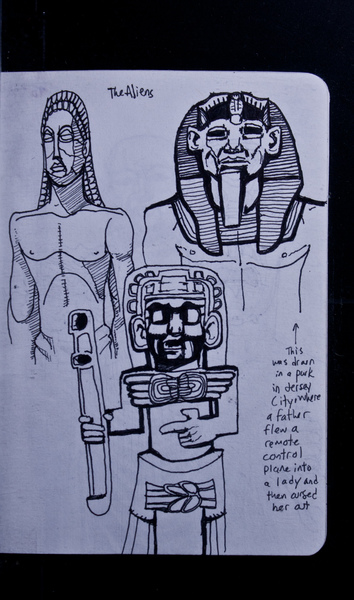 The Aliens
This
was drawn
in a park
in Jersey
City, where
a father
flew a
remote
control
plane into
a lady and
then cursed
her out